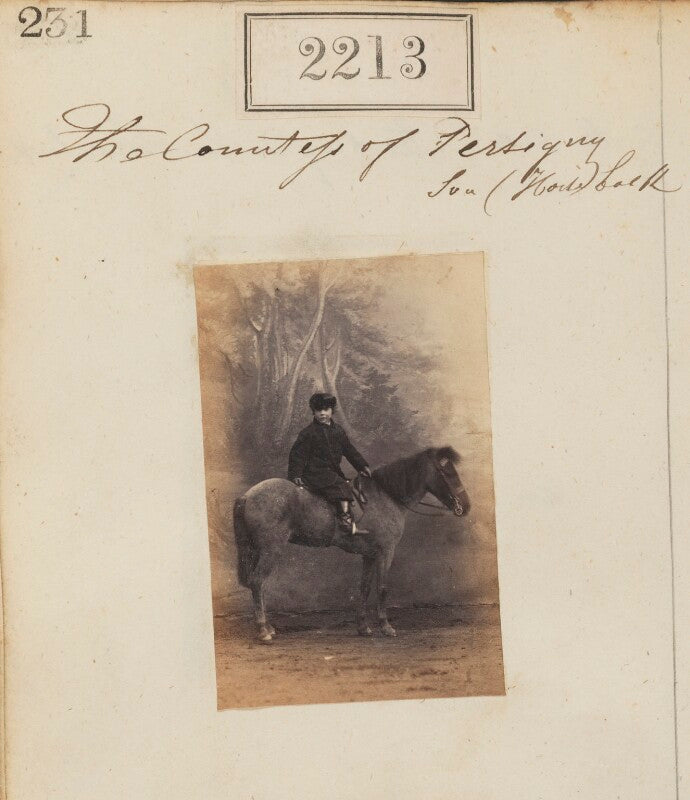 231
2213
The Countess of Persigny
Son (Horse) back